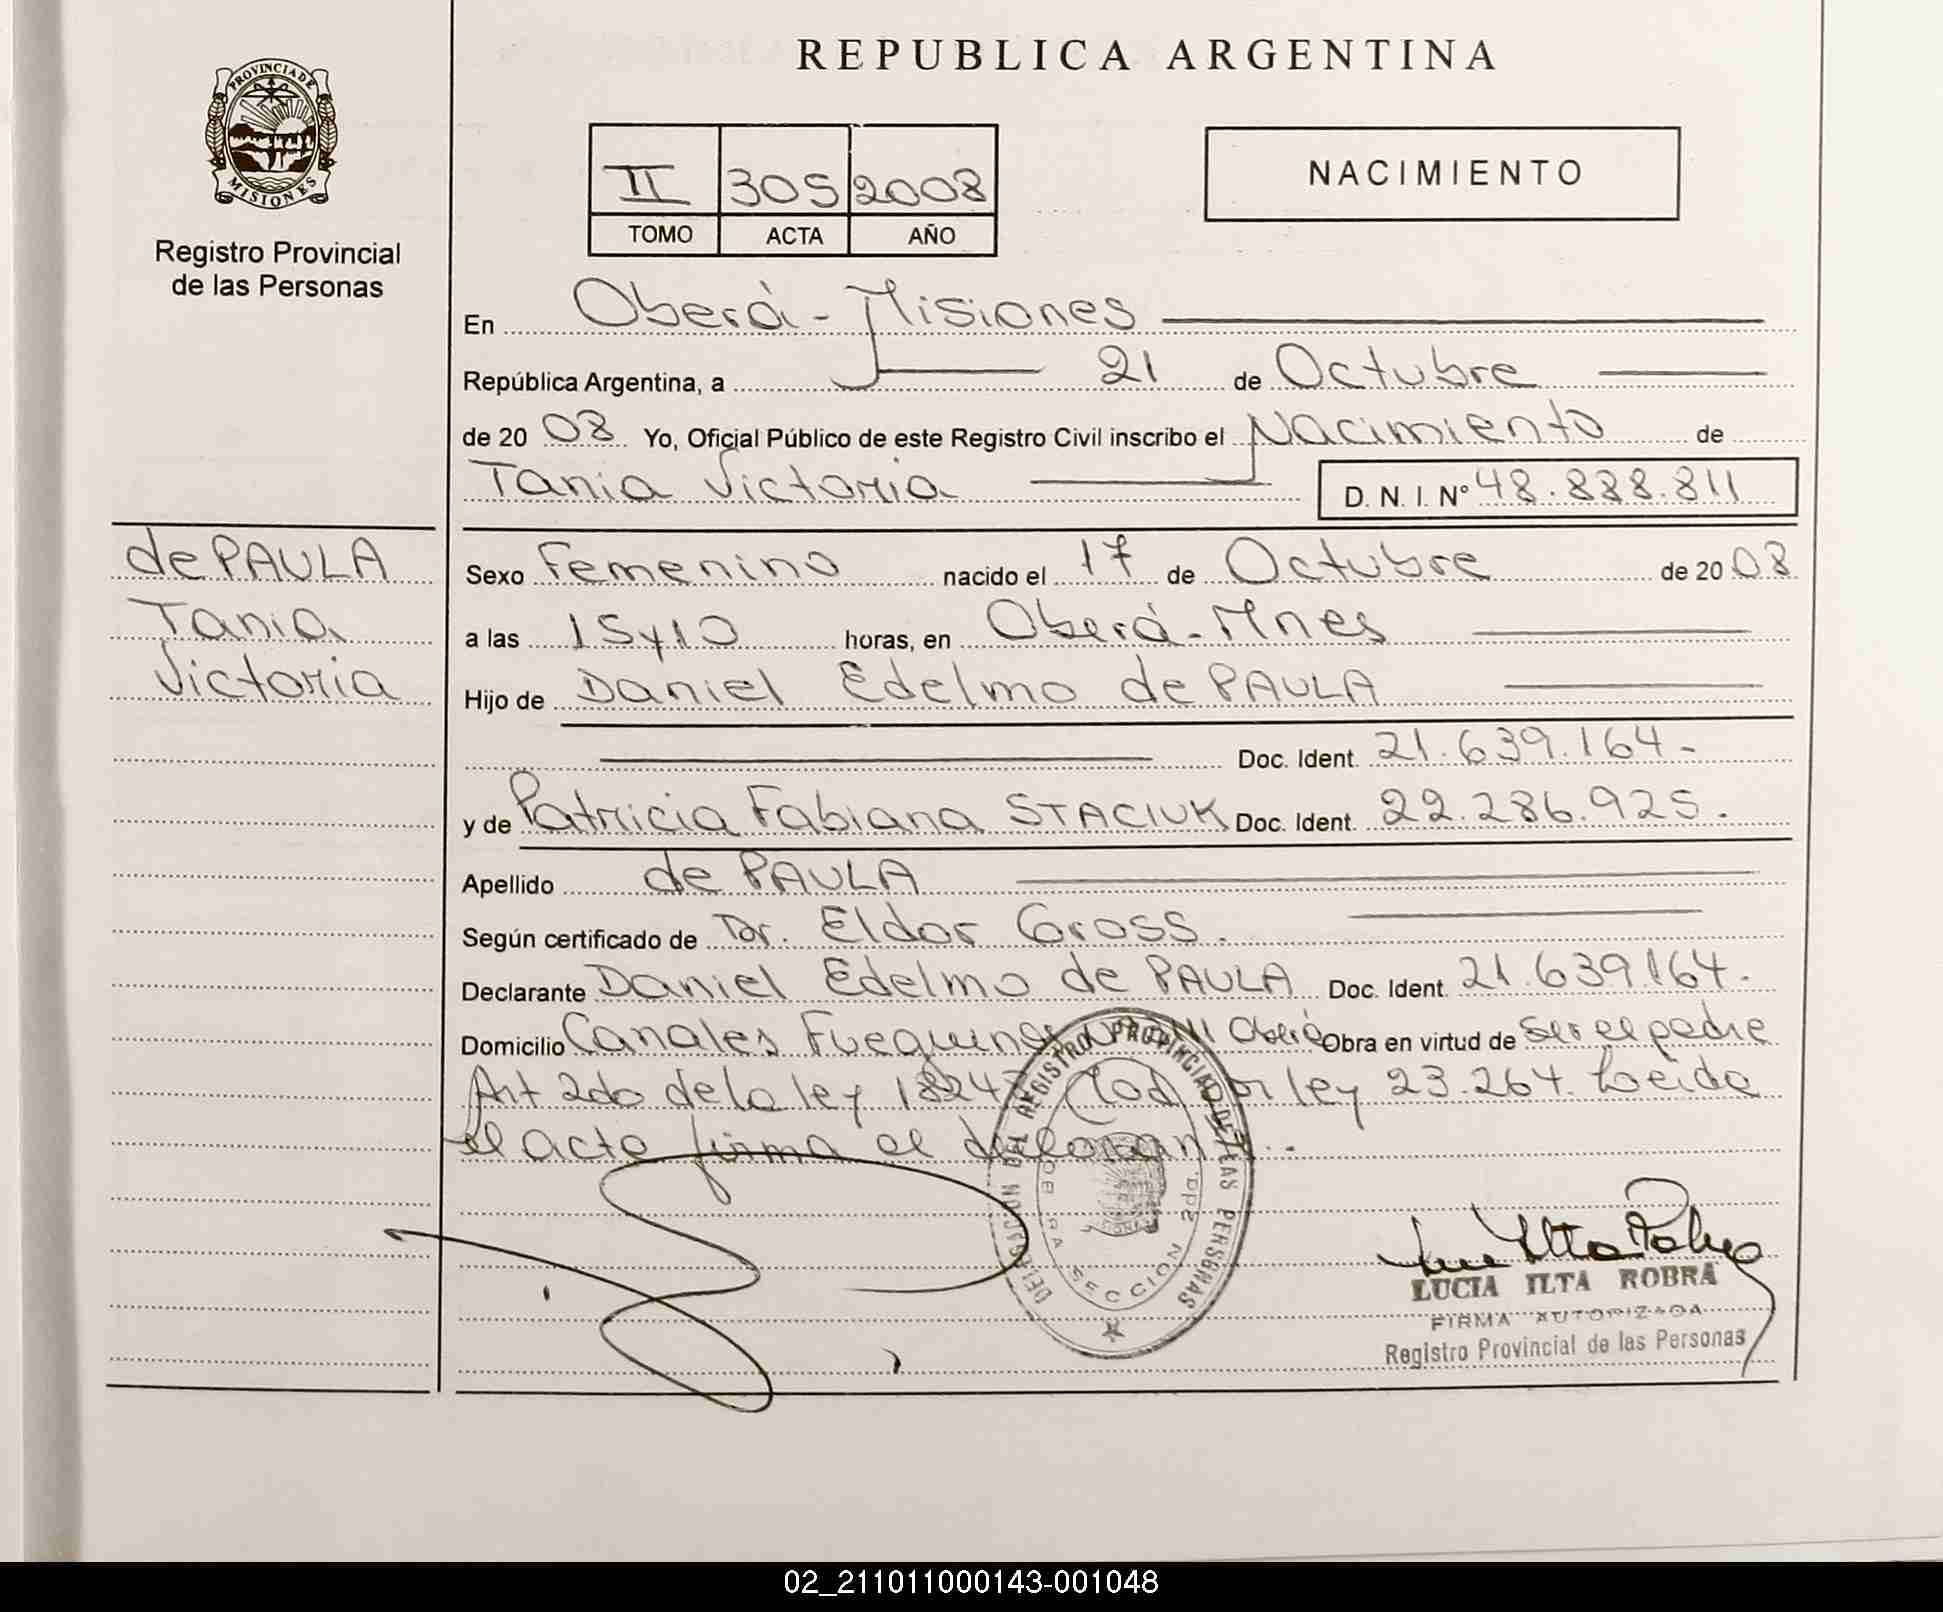 REPUBLICA ARGENTINA
PROVINCIA DE
MISIONES
Registro Provincial
de las Personas
II 305 2008
TOMO ACTA AÑO
NACIMIENTO
En Oberá - Misiones
República Argentina, a 21 de Octubre
de 20 08 Yo, Oficial Público de este Registro Civil inscribo el Nacimiento de
Tania Victoria D. N. I. Nº 48.838.811
de PAULA
Tania
Victoria
Sexo Femenino nacido el 17 de Octubre de 20 08
a las 15 y 10 horas, en Oberá - Mnes
Hijo de Daniel Edelmo de PAULA
Doc. Ident. 21.639.164.-
y de Patricia Fabiana STACIUK Doc. Ident. 22.286.925.
Apellido de PAULA
Según certificado de Dr. Eldor Gross.
Declarante Daniel Edelmo de PAULA Doc. Ident. 21.639.164.
Domicilio Canales Oberá Obra en virtud de ser el padre
Art 2do de la ley 1824 Mod por ley 23.264. Leida
el acto firma el declarante.-
DELEGACION DEL REGISTRO PROVINCIAL DE LAS PERSONAS
OBERA SECCION 2da
LUCIA ILTA ROBRA
FIRMA AUTORIZADA
Registro Provincial de las Personas
02_211011000143-001048